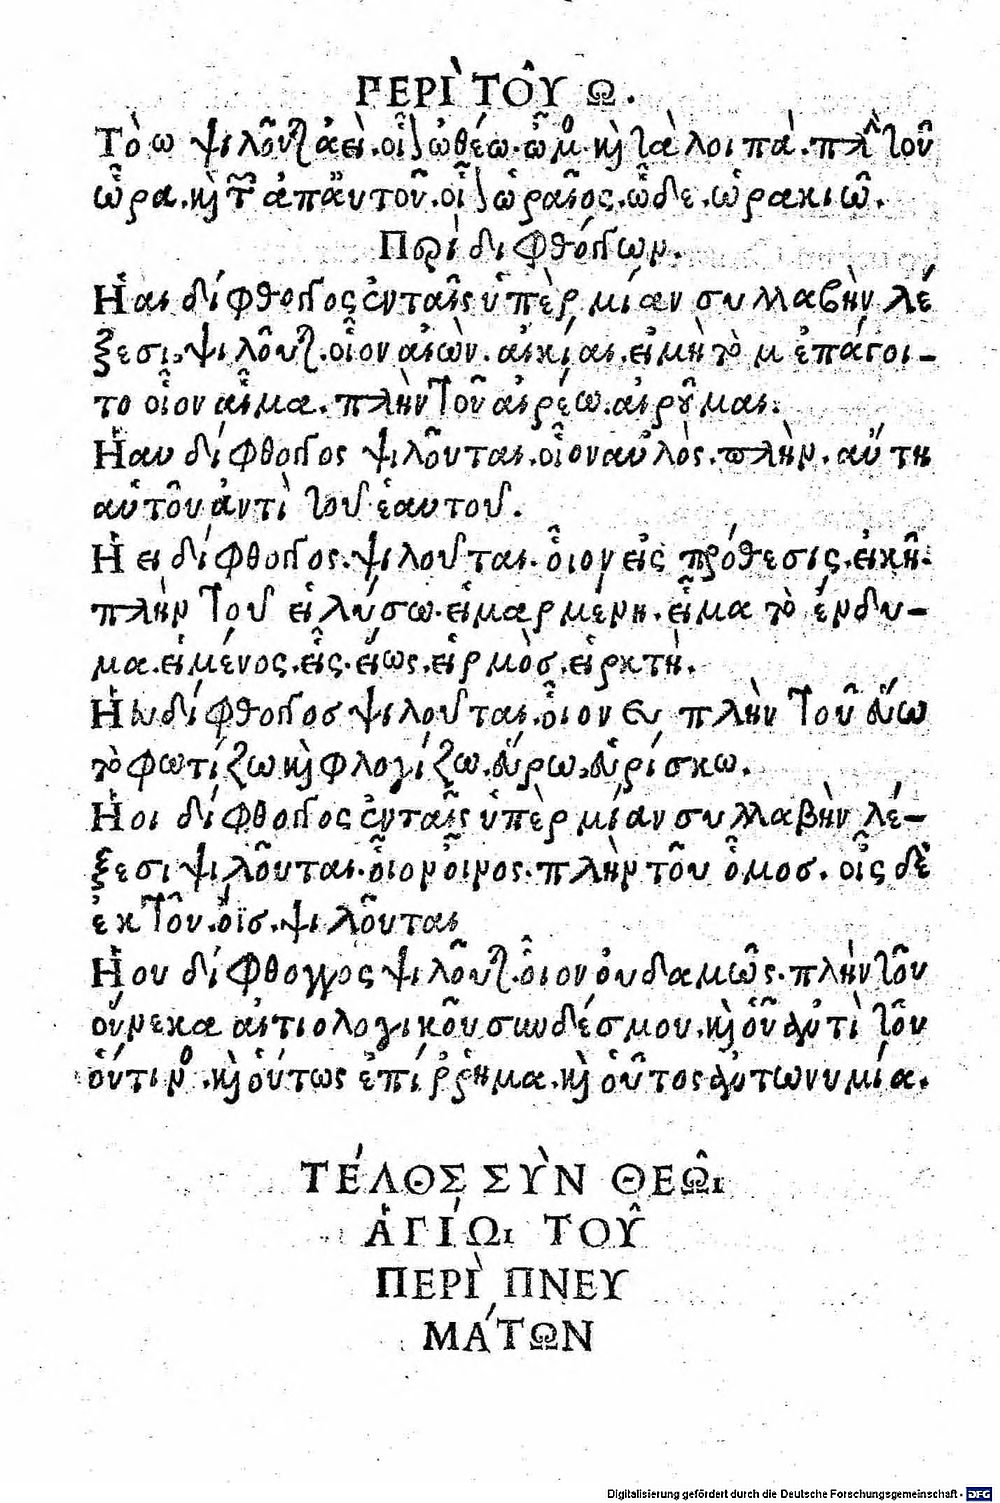 ΠΕΡῚ ΤΟΥ͂ Ω.
Τὸ ω ψιλοῦται ἀεὶ. οἷον ὠθέω. ὦμος. καὶ τὰ λοιπὰ. πλὴν τοῦ
ὥρα. καὶ ἀπ αὐτοῦ. οἷον ὡραῖος. ὧδε. ὡρακιῶ.
Περὶ διφθόγγων.
Ἡ αι δίφθογγος ἐν ταῖς ὑπὲρ μίαν συλλαβὴν λέ
ξεσι, ψιλοῦται. οἷον αἰὼν. αἰκίαι. εἰ μὴ τὸ μ ἐπάγοι-
το οἷον αἷμα. πλὴν τοῦ αἱρέω. αἱροῦμαι.
Ἡ αυ δίφθογγος ψιλοῦται. οἷον αὐλὸς. πλὴν. αὕτη
αὑτοῦ ἀντὶ τοῦ ἑαυτοῦ.
Ἡ ει δίφθογγος. ψιλοῦται. οἷον εἰς πρόθεσις. εἰκῆ.
πλὴν τοῦ εἱλύσω. εἱμαρμένη. εἷμα τὸ ἔνδυ-
μα. εἱμένος. εἷς. εἵως. εἱρμὸσ. εἱρκτὴ.
Ἡ ευ δίφθογγοσ ψιλοῦται. οἷον εὐ πλὴν τοῦ εὕω
τὸ φωτίζω καὶ φλογίζω. εὕρω, εὑρίσκω.
Ἡ οι δίφθογγος ἐν ταῖς ὑπὲρ μίαν συλλαβὴν λέ-
ξεσι ψιλοῦται. οἷον οἶνος. πλὴν τοῦ οἷμοσ. οἷς δὲ
ἐκ τοῦ. ὄϊσ. ψιλοῦται
Ἡ ου δίφθογγος ψιλοῦται. οἷον οὐδαμῶς. πλὴν τοῦ
οὕνεκα αἰτιολογικοῦ συνδέσμου. καὶ οὗ ἀντὶ τοῦ
οὕτινος. καὶ οὕτως ἐπίῤῥημα. καὶ οὗτος ἀντωνυμία.
ΤΈΛΟΣ ΣῪΝ ΘΕΩ͂Ι
ἉΓΊΩΙ ΤΟΥ͂
ΠΕΡῚ ΠΝΕΥ
ΜΆΤΩΝ
Digitalisierung gefördert durch die Deutsche Forschungsgemeinschaft - DFG